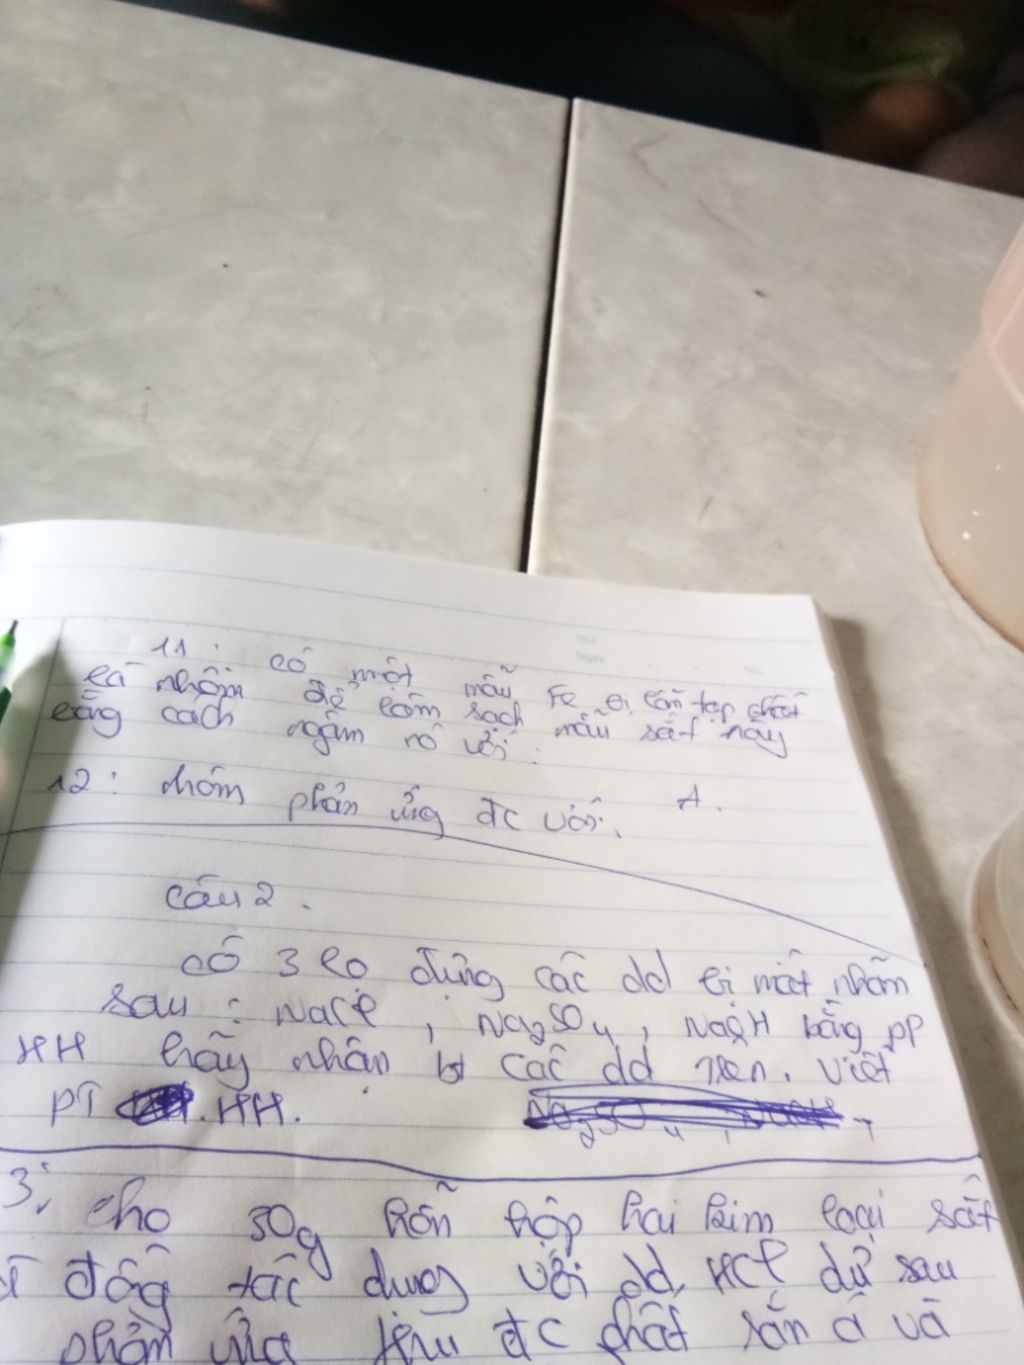 11. có một mẫu Fe bị lẫn tạp chất
là nhôm để làm sạch mẫu sắt này
bằng cách ngâm nó với:
12: nhóm phản ứng đc với. A.
Câu 2.
có 3 lọ đựng các dd bị mất nhãn
sau : NaCl, Na2SO4, NaOH bằng pp
HH hãy nhận bt các dd trên. viết
PT HH.
3; cho 30g hỗn hợp hai kim loại sắt
đồng tác dụng với dd HCl dư sau
phản ứng thu đc chất rắn A và